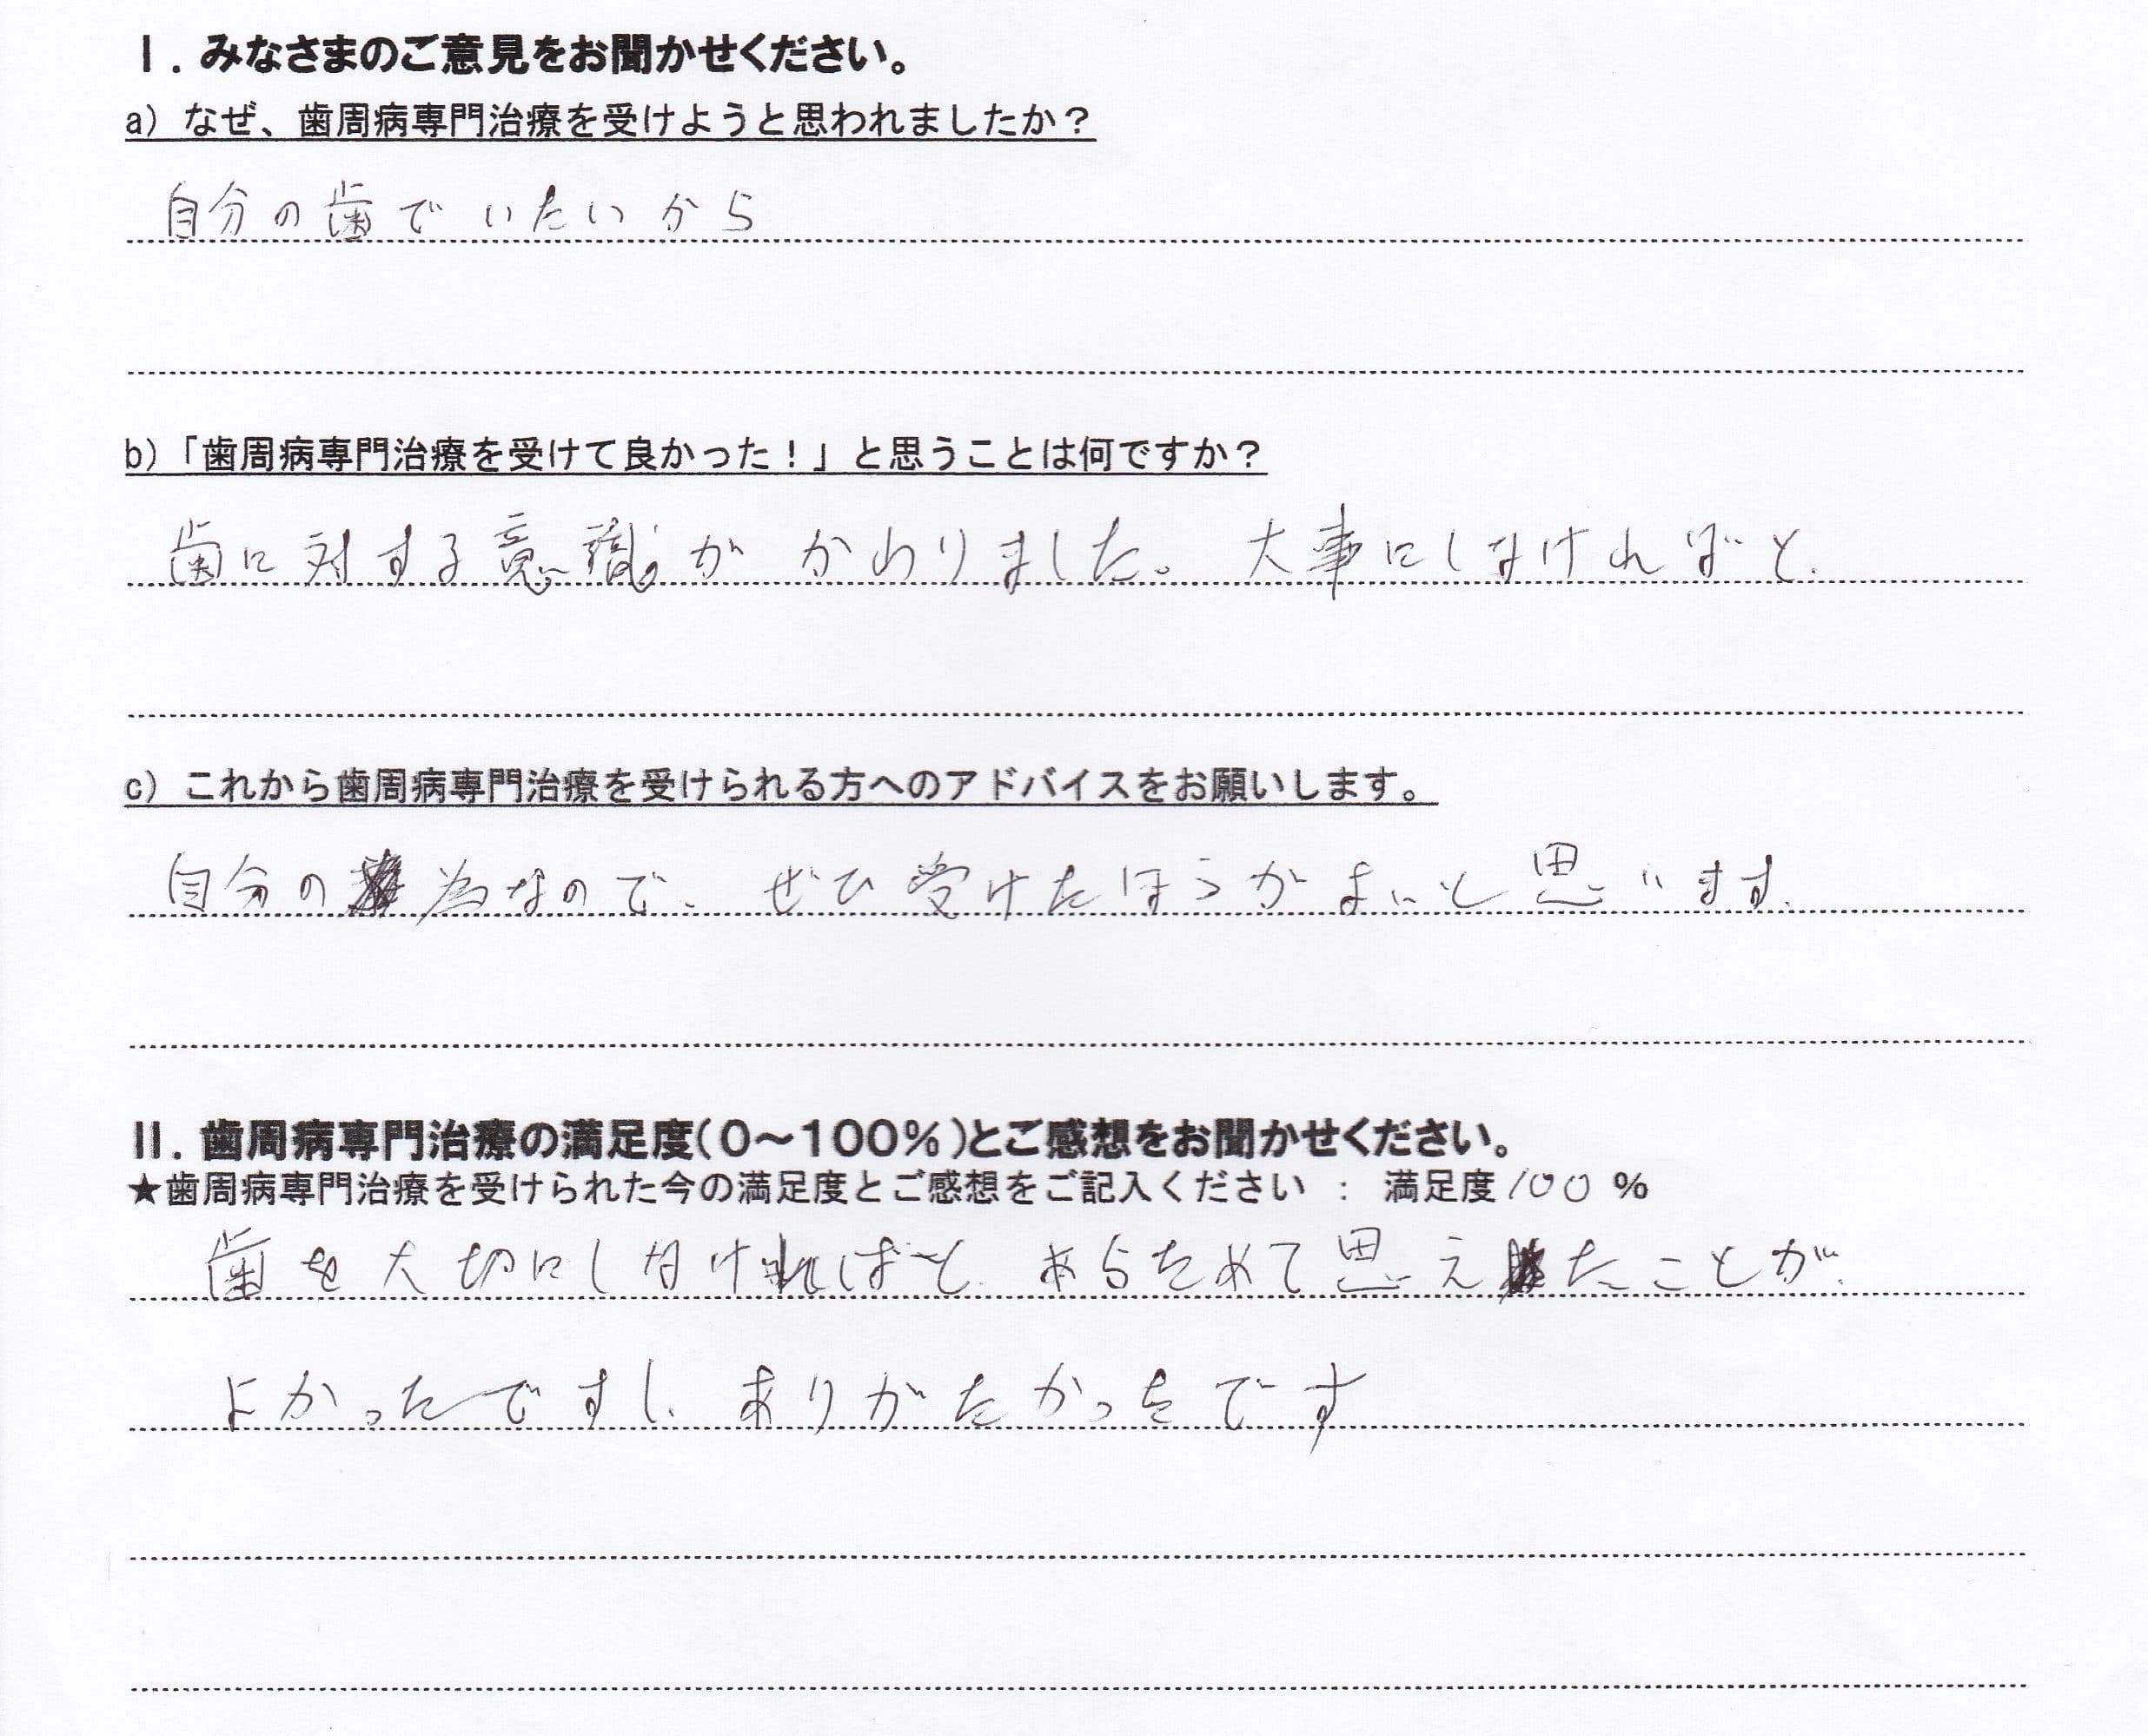 I. みなさまのご意見をお聞かせください。
a) なぜ、歯周病専門治療を受けようと思われましたか？
自分の歯でいたいから
b)「歯周病専門治療を受けて良かった！」と思うことは何ですか？
歯に対する意識が かわりました。 大事にしなければと.
c) これから歯周病専門治療を受けられる方へのアドバイスをお願いします。
自分の為なので、ぜひ受けたほうがよいと思います.
II. 歯周病専門治療の満足度(0～100%)とご感想をお聞かせください。
★歯周病専門治療を受けられた今の満足度とご感想をご記入ください : 満足度 100 %
歯を大切にしなければと、あらためて思えたことが、
よかったですし、ありがたかったです